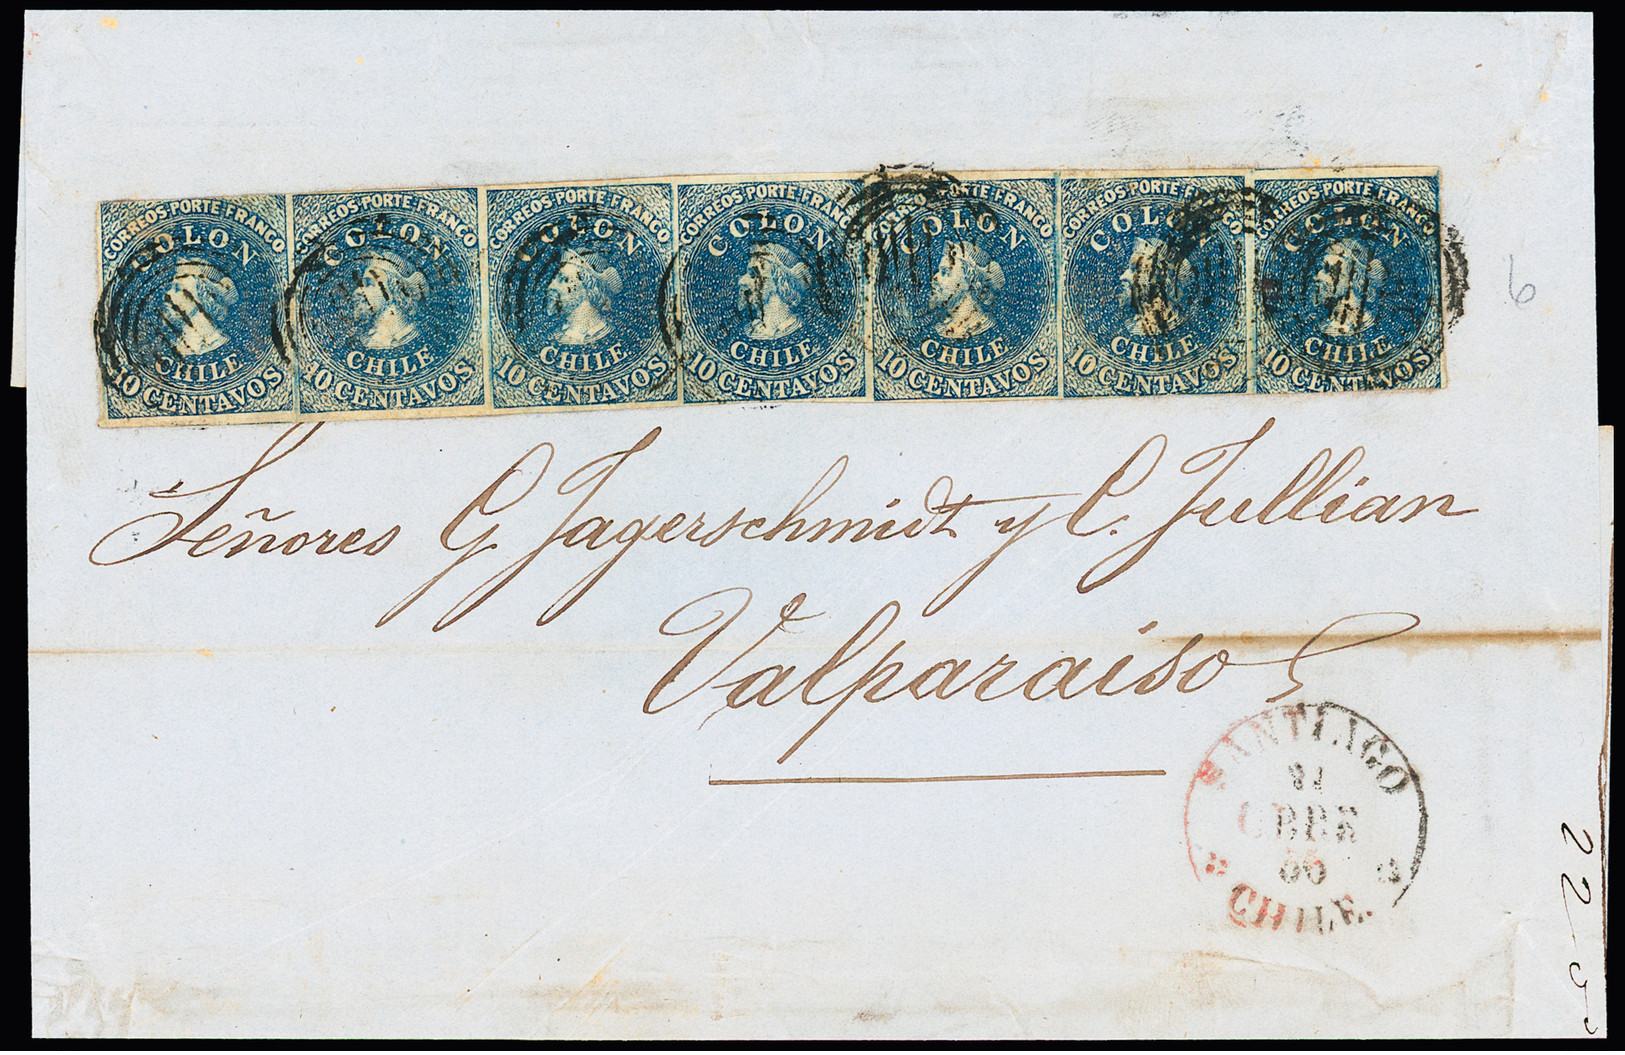 CORREOS PORTE FRANCO CORREOS PORTE FRANCO CORREOS PORTE FRANCO CORREOS PORTE FRANCO CORREOS PORTE FRANCO CORREOS PORTE FRANCO CORREOS PORTE FRANCO
COLON COLON COLON COLON COLON COLON COLON
CHILE CHILE CHILE CHILE CHILE CHILE CHILE
10 CENTAVOS 10 CENTAVOS 10 CENTAVOS 10 CENTAVOS 10 CENTAVOS 10 CENTAVOS 10 CENTAVOS
6
Señores G Jagerschmidt y C. Jullian
Valparaiso
SANTIAGO
CHILE.